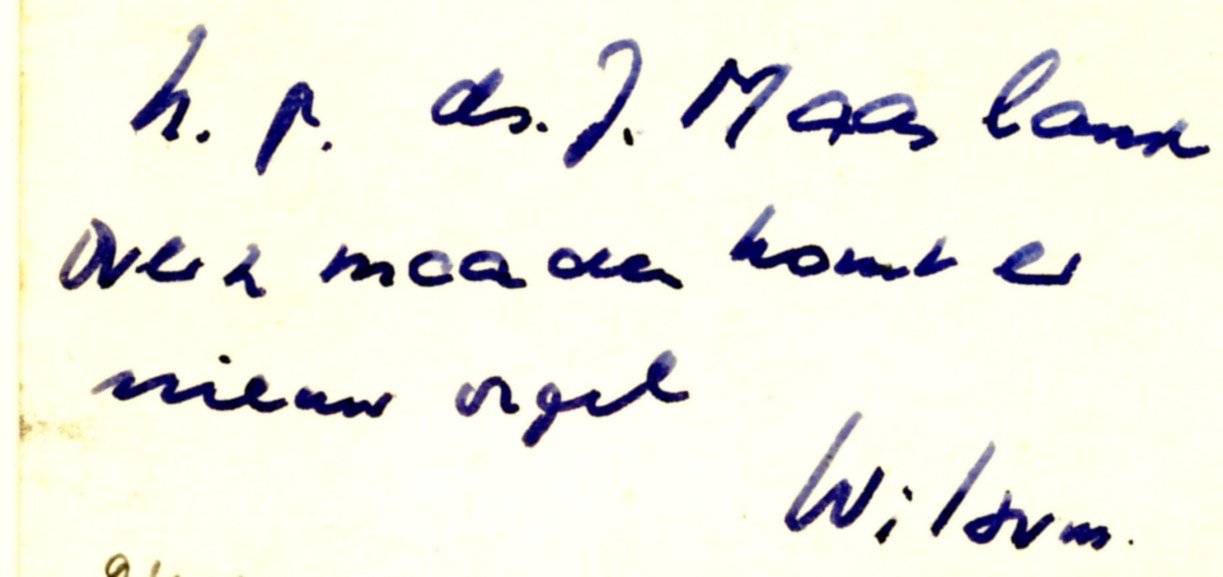 h. p. ds. J. Maasland
Over 2 maanden komt er
nieuw orgel
Wilsum.